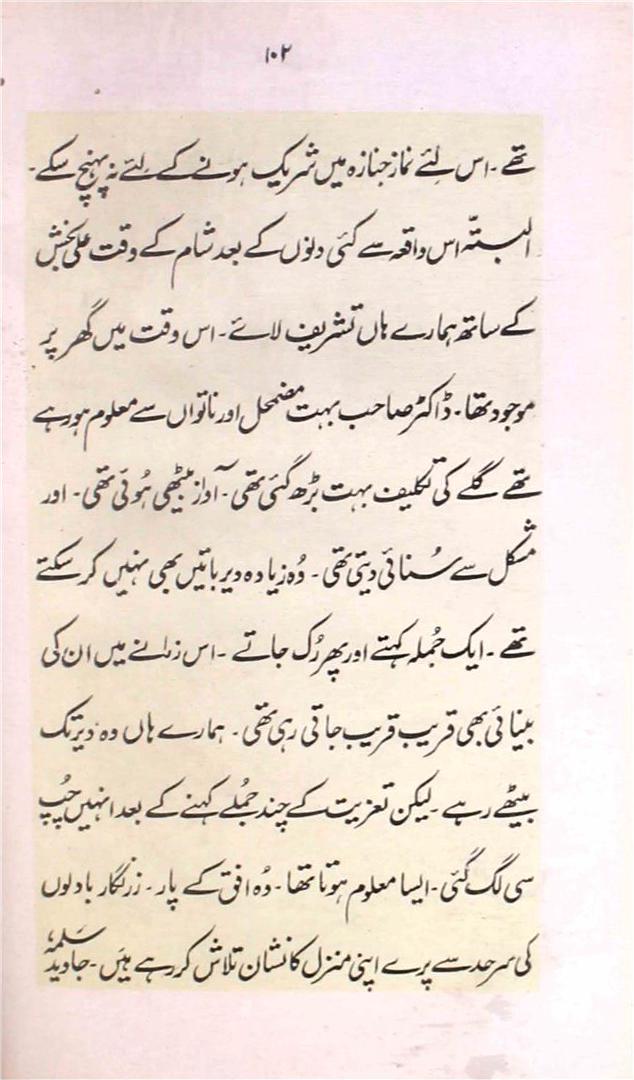 ۱۰۲
تھے ۔ اس لئے نماز جنازہ میں شریک ہونے کے لئے نہ پہنچ سکے ۔
البتہّ اس واقعہ سے کئی دنوں کے بعد شام کے وقت علی بخش
کے ساتھ ہمارے ہاں تشریف لائے ۔ اس وقت میں گھر پر
موجود تھا ۔ ڈاکٹر صاحب بہت مضمحل اور ناتواں سے معلوم ہو رہے
تھے گلے کی تکلیف بہت بڑھ گئی تھی ۔ آواز بیٹھی ہُوئی تھی ۔ اور
مشکل سے سُنائی دیتی تھی ۔ وُہ زیادہ دیر باتیں بھی نہیں کر سکتے
تھے ۔ ایک جُملہ کہتے اور پھر رُک جاتے ۔ اس زمانے میں ان کی
بینائی بھی قریب قریب جاتی رہی تھی ۔ ہمارے ہاں وہ دیر تک
بیٹھے رہے ۔ لیکن تعزیت کے چند جُملے کہنے کے بعد انہیں چُپ
سی لگ گئی ۔ ایسا معلوم ہوتا تھا ۔ وُہ افق کے پار ۔ زرنگار بادلوں
کی سرحد سے پرے اپنی منزل کا نشان تلاش کر رہے ہیں ۔ جاوید سلمہٗ